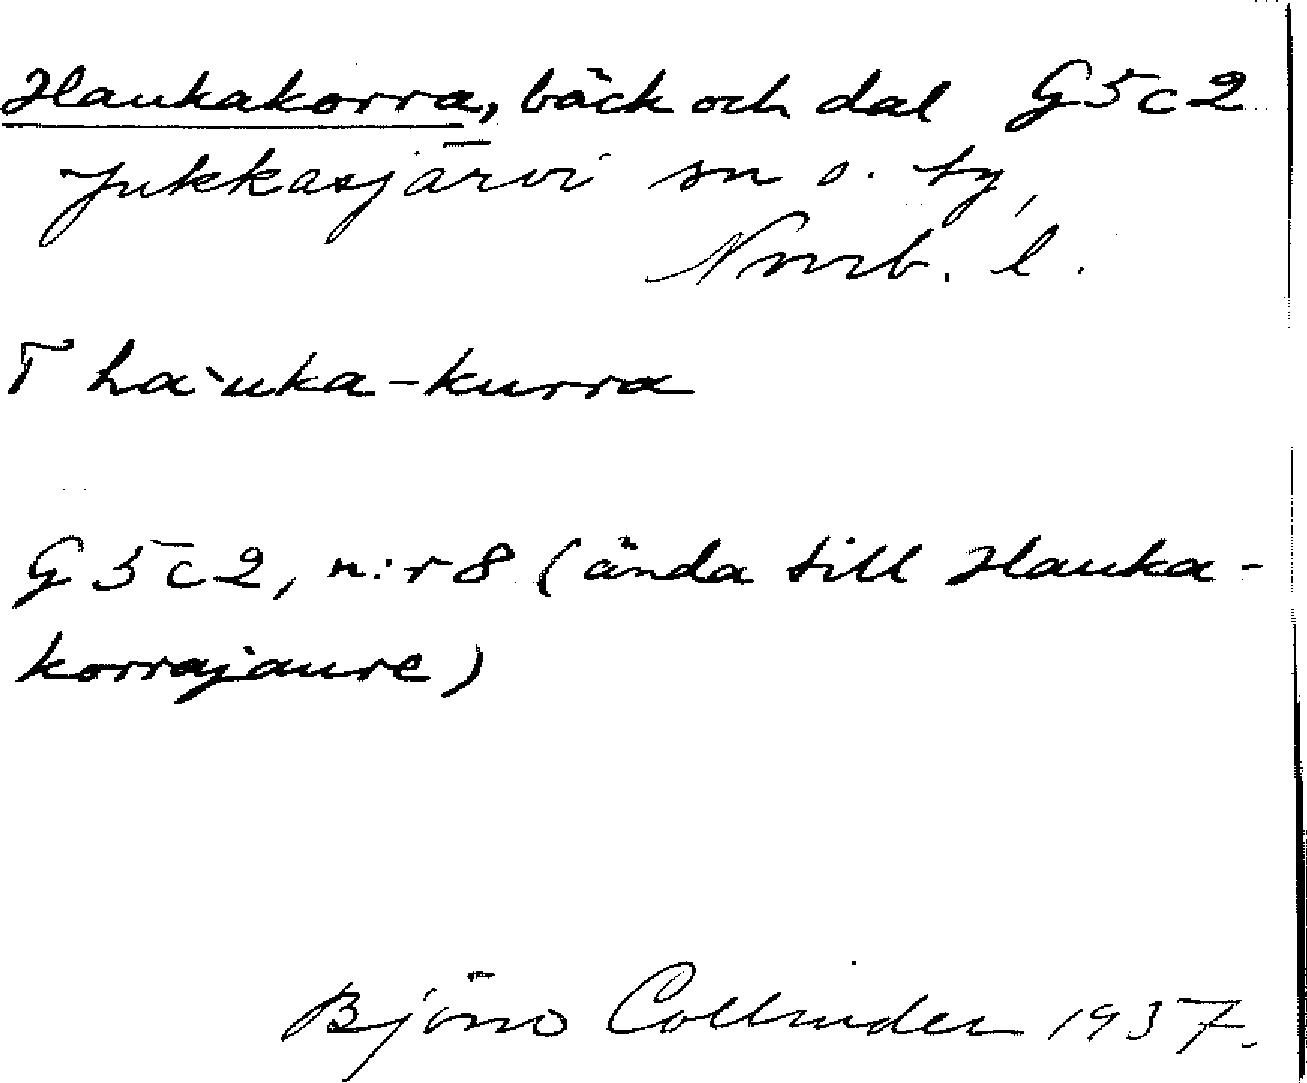 Haukakorra, bäck och dal G5c2
Jukkasjärvi sn o. tg,
Norrb. l.
T ha`uka-kurra
G5c2, n:r 8 (ända till Hauka-
korrajaure)
Björn Collinder 1937.